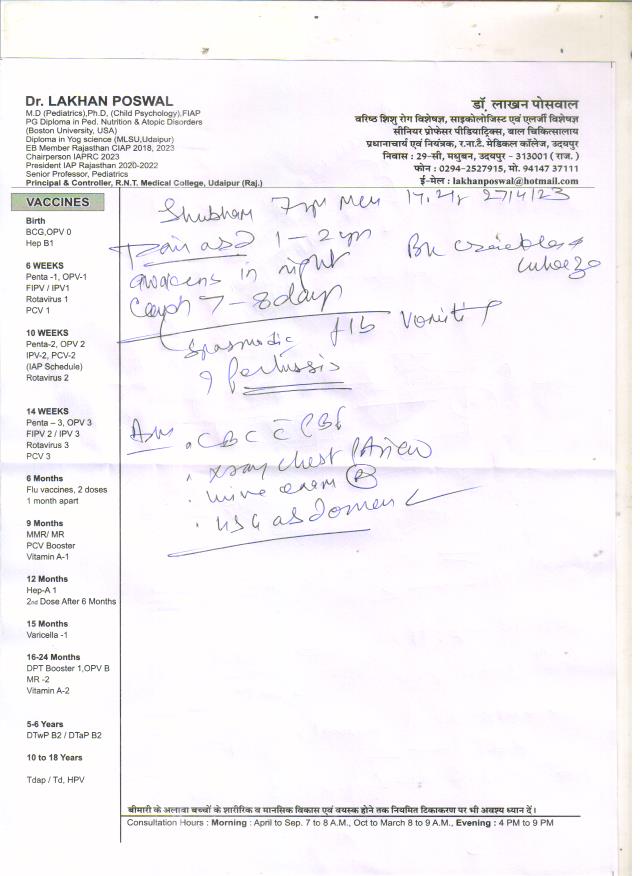 Dr. LAKHAN POSWAL
M.D (Pediatrics),Ph.D, (Child Psychology),FIAP
PG Diploma in Ped. Nutrition & Atopic Disorders
(Boston University, USA)
Diploma in Yog science (MLSU,Udaipur)
EB Member Rajasthan CIAP 2018, 2023
Chairperson IAPRC 2023
President IAP Rajasthan 2020-2022
Senior Professor, Pediatrics
Principal & Controller, R.N.T. Medical College, Udaipur (Raj.)
डॉ. लाखन पोसवाल
वरिष्ठ शिशु रोग विशेषज्ञ, साइकोलोजिस्ट एवं एलर्जी विशेषज्ञ
सीनियर प्रोफेसर पीडियाट्रिक्स, बाल चिकित्सालय
प्रधानाचार्य एवं नियंत्रक, र.ना.टै. मेडिकल कॉलेज, उदयपुर
निवास : 29-सी, मधुबन, उदयपुर - 313001 ( राज. )
फोन : 0294-2527915, मो. 94147 37111
ई-मेल : lakhanposwal@hotmail.com
VACCINES
Birth
BCG,OPV 0
Hep B1
6 WEEKS
Penta -1, OPV-1
FIPV / IPV1
Rotavirus 1
PCV 1
10 WEEKS
Penta-2, OPV 2
IPV-2, PCV-2
(IAP Schedule)
Rotavirus 2
14 WEEKS
Penta – 3, OPV 3
FIPV 2 / IPV 3
Rotavirus 3
PCV 3
6 Months
Flu vaccines, 2 doses
1 month apart
9 Months
MMR/ MR
PCV Booster
Vitamin A-1
12 Months
Hep-A 1
2nd Dose After 6 Months
15 Months
Varicella -1
16-24 Months
DPT Booster 1,OPV B
MR -2
Vitamin A-2
5-6 Years
DTwP B2 / DTaP B2
10 to 18 Years
Tdap / Td, HPV
Shubham 27/4/23
Pain abd 1-2 yr
in night
Cough 7-8 days
Spasmodic f/b
? Pertussis
CBC
xray chest PA view
Urine exam
USG abdomen
बीमारी के अलावा बच्चों के शारीरिक व मानसिक विकास एवं वयस्क होने तक नियमित टिकाकरण पर भी अवश्य ध्यान दें।
Consultation Hours : Morning : April to Sep. 7 to 8 A.M., Oct to March 8 to 9 A.M., Evening : 4 PM to 9 PM